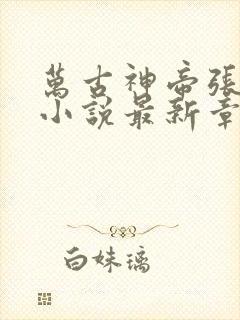 萬古神帝張
小說最新章
白妹璃